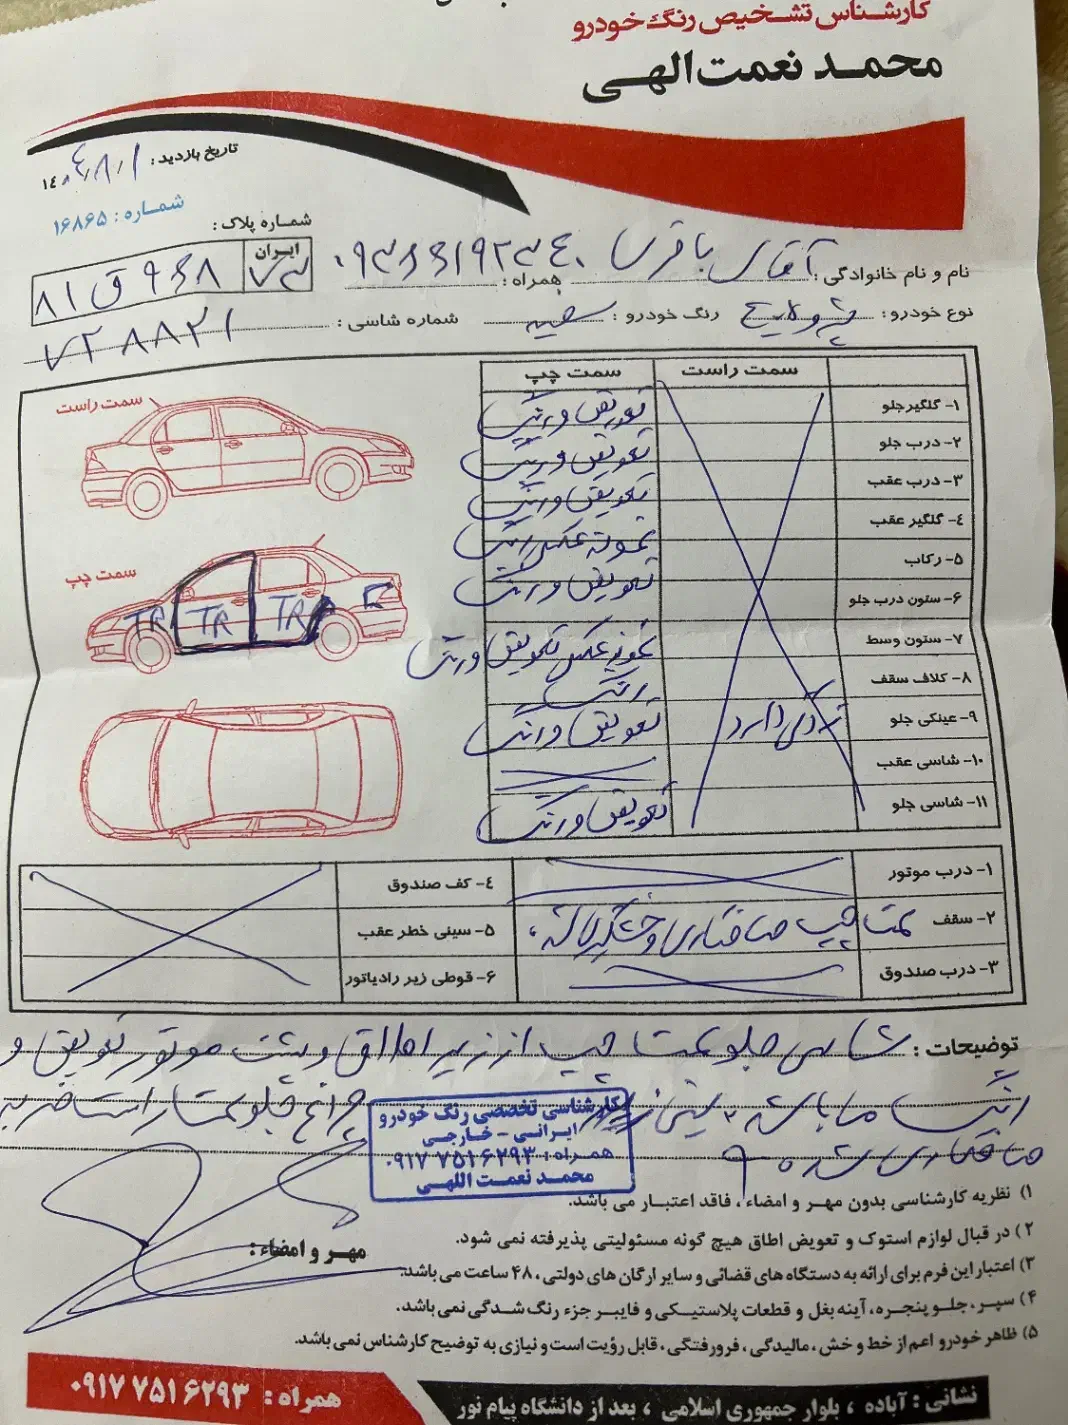 کارشناس تشخیص رنگ خودرو
محمد نعمت الهی
تاریخ بازدید: ۱۴۰۴/۸/۱
شماره: ۱۶۸۶۵
شماره پلاک:
ایران
۷۳
۸۱ ق
نام و نام خانوادگی: آقای باقری
همراه:
نوع خودرو:
رنگ خودرو: سفید
شماره شاسی: ۷۲۸۸۲۱
سمت راست
سمت چپ
۱- گلگیر جلو تعویض و رنگ
۲- درب جلو تعویض و رنگ
۳- درب عقب تعویض و رنگ
۴- گلگیر عقب رنگ
۵- رکاب تعویض و رنگ
۶- ستون درب جلو
۷- ستون وسط تعویض و رنگ
۸- کلاف سقف رنگ
۹- عینکی جلو تعویض و رنگ
۱۰- شاسی عقب
۱۱- شاسی جلو تعویض و رنگ
سمت راست
سمت چپ
TR TR TR R
۱- درب موتور
۲- سقف سمت چپ صافکاری و
۳- درب صندوق
۴- کف صندوق
۵- سینی خطر عقب
۶- قوطی زیر رادیاتور
توضیحات: شاسی جلو سمت چپ از زیر اطاق و پشت موتور تعویض و
رنگ می باشد چراغ جلو سمت راست ضربه
صافکاری شده
کارشناسی تخصصی رنگ خودرو
ایرانی - خارجی
همراه: ۰۹۱۷ ۷۵۱ ۶۲۹۳
محمد نعمت اللهی
مهر و امضاء:
۱) نظریه کارشناسی بدون مهر و امضاء، فاقد اعتبار می باشد.
۲) در قبال لوازم استوک و تعویض اطاق هیچ گونه مسئولیتی پذیرفته نمی شود.
۳) اعتبار این فرم برای ارائه به دستگاه های قضائی و سایر ارگان های دولتی، ۴۸ ساعت می باشد.
۴) سپر، جلو پنجره، آینه بغل و قطعات پلاستیکی و فایبر جزء رنگ شدگی نمی باشد.
۵) ظاهر خودرو اعم از خط و خش، مالیدگی، فرورفتگی، قابل رؤیت است و نیازی به توضیح کارشناس نمی باشد.
نشانی: آباده، بلوار جمهوری اسلامی، بعد از دانشگاه پیام نور
همراه: ۰۹۱۷ ۷۵۱ ۶۲۹۳